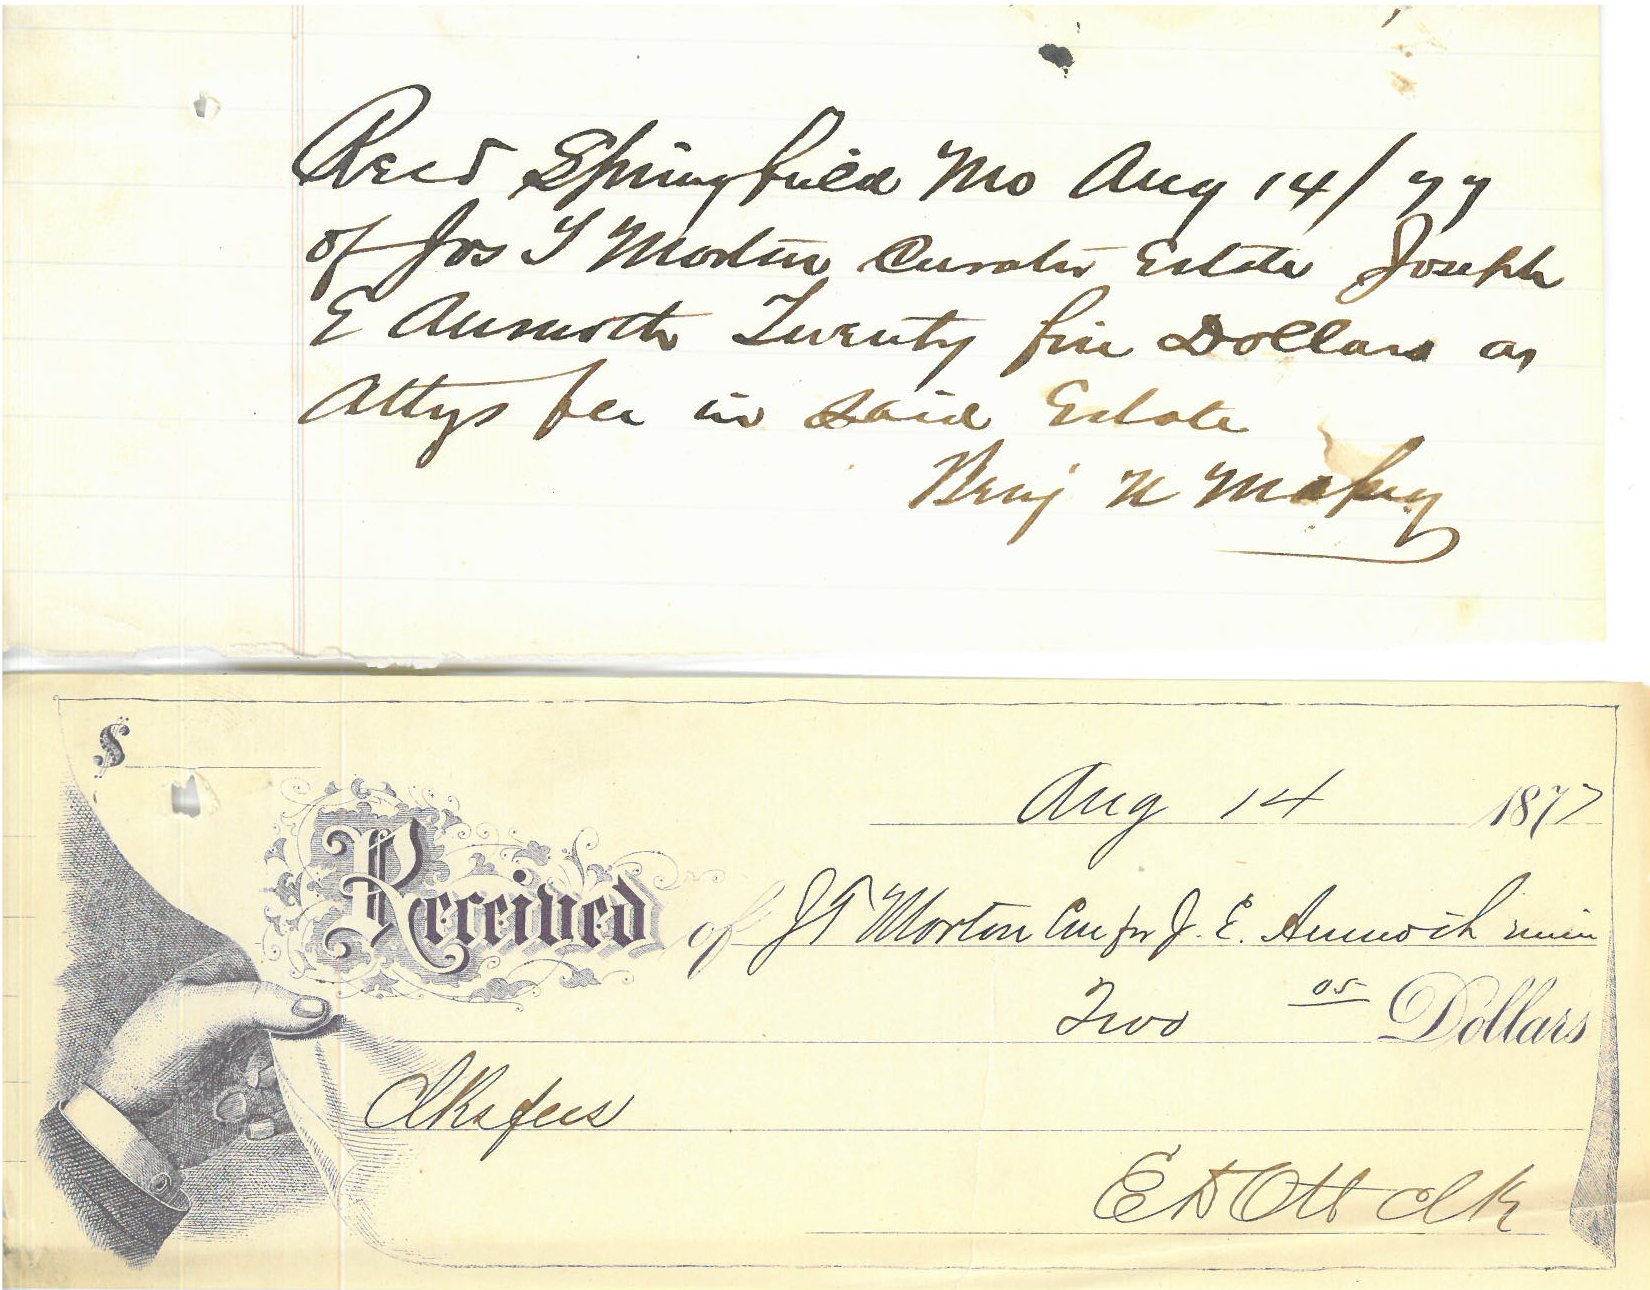 Recd Springfield Mo Aug 14/77
of Jos T Morton Curator Estate Joseph
E Aumoth Twenty five Dollars as
Attys fee in said Estate
Benj N
$
Aug 14 1877
Received of J T Morton Cur for J. E. Aumoth
Two 05 Dollars
Clks fees
E D Ott Clk